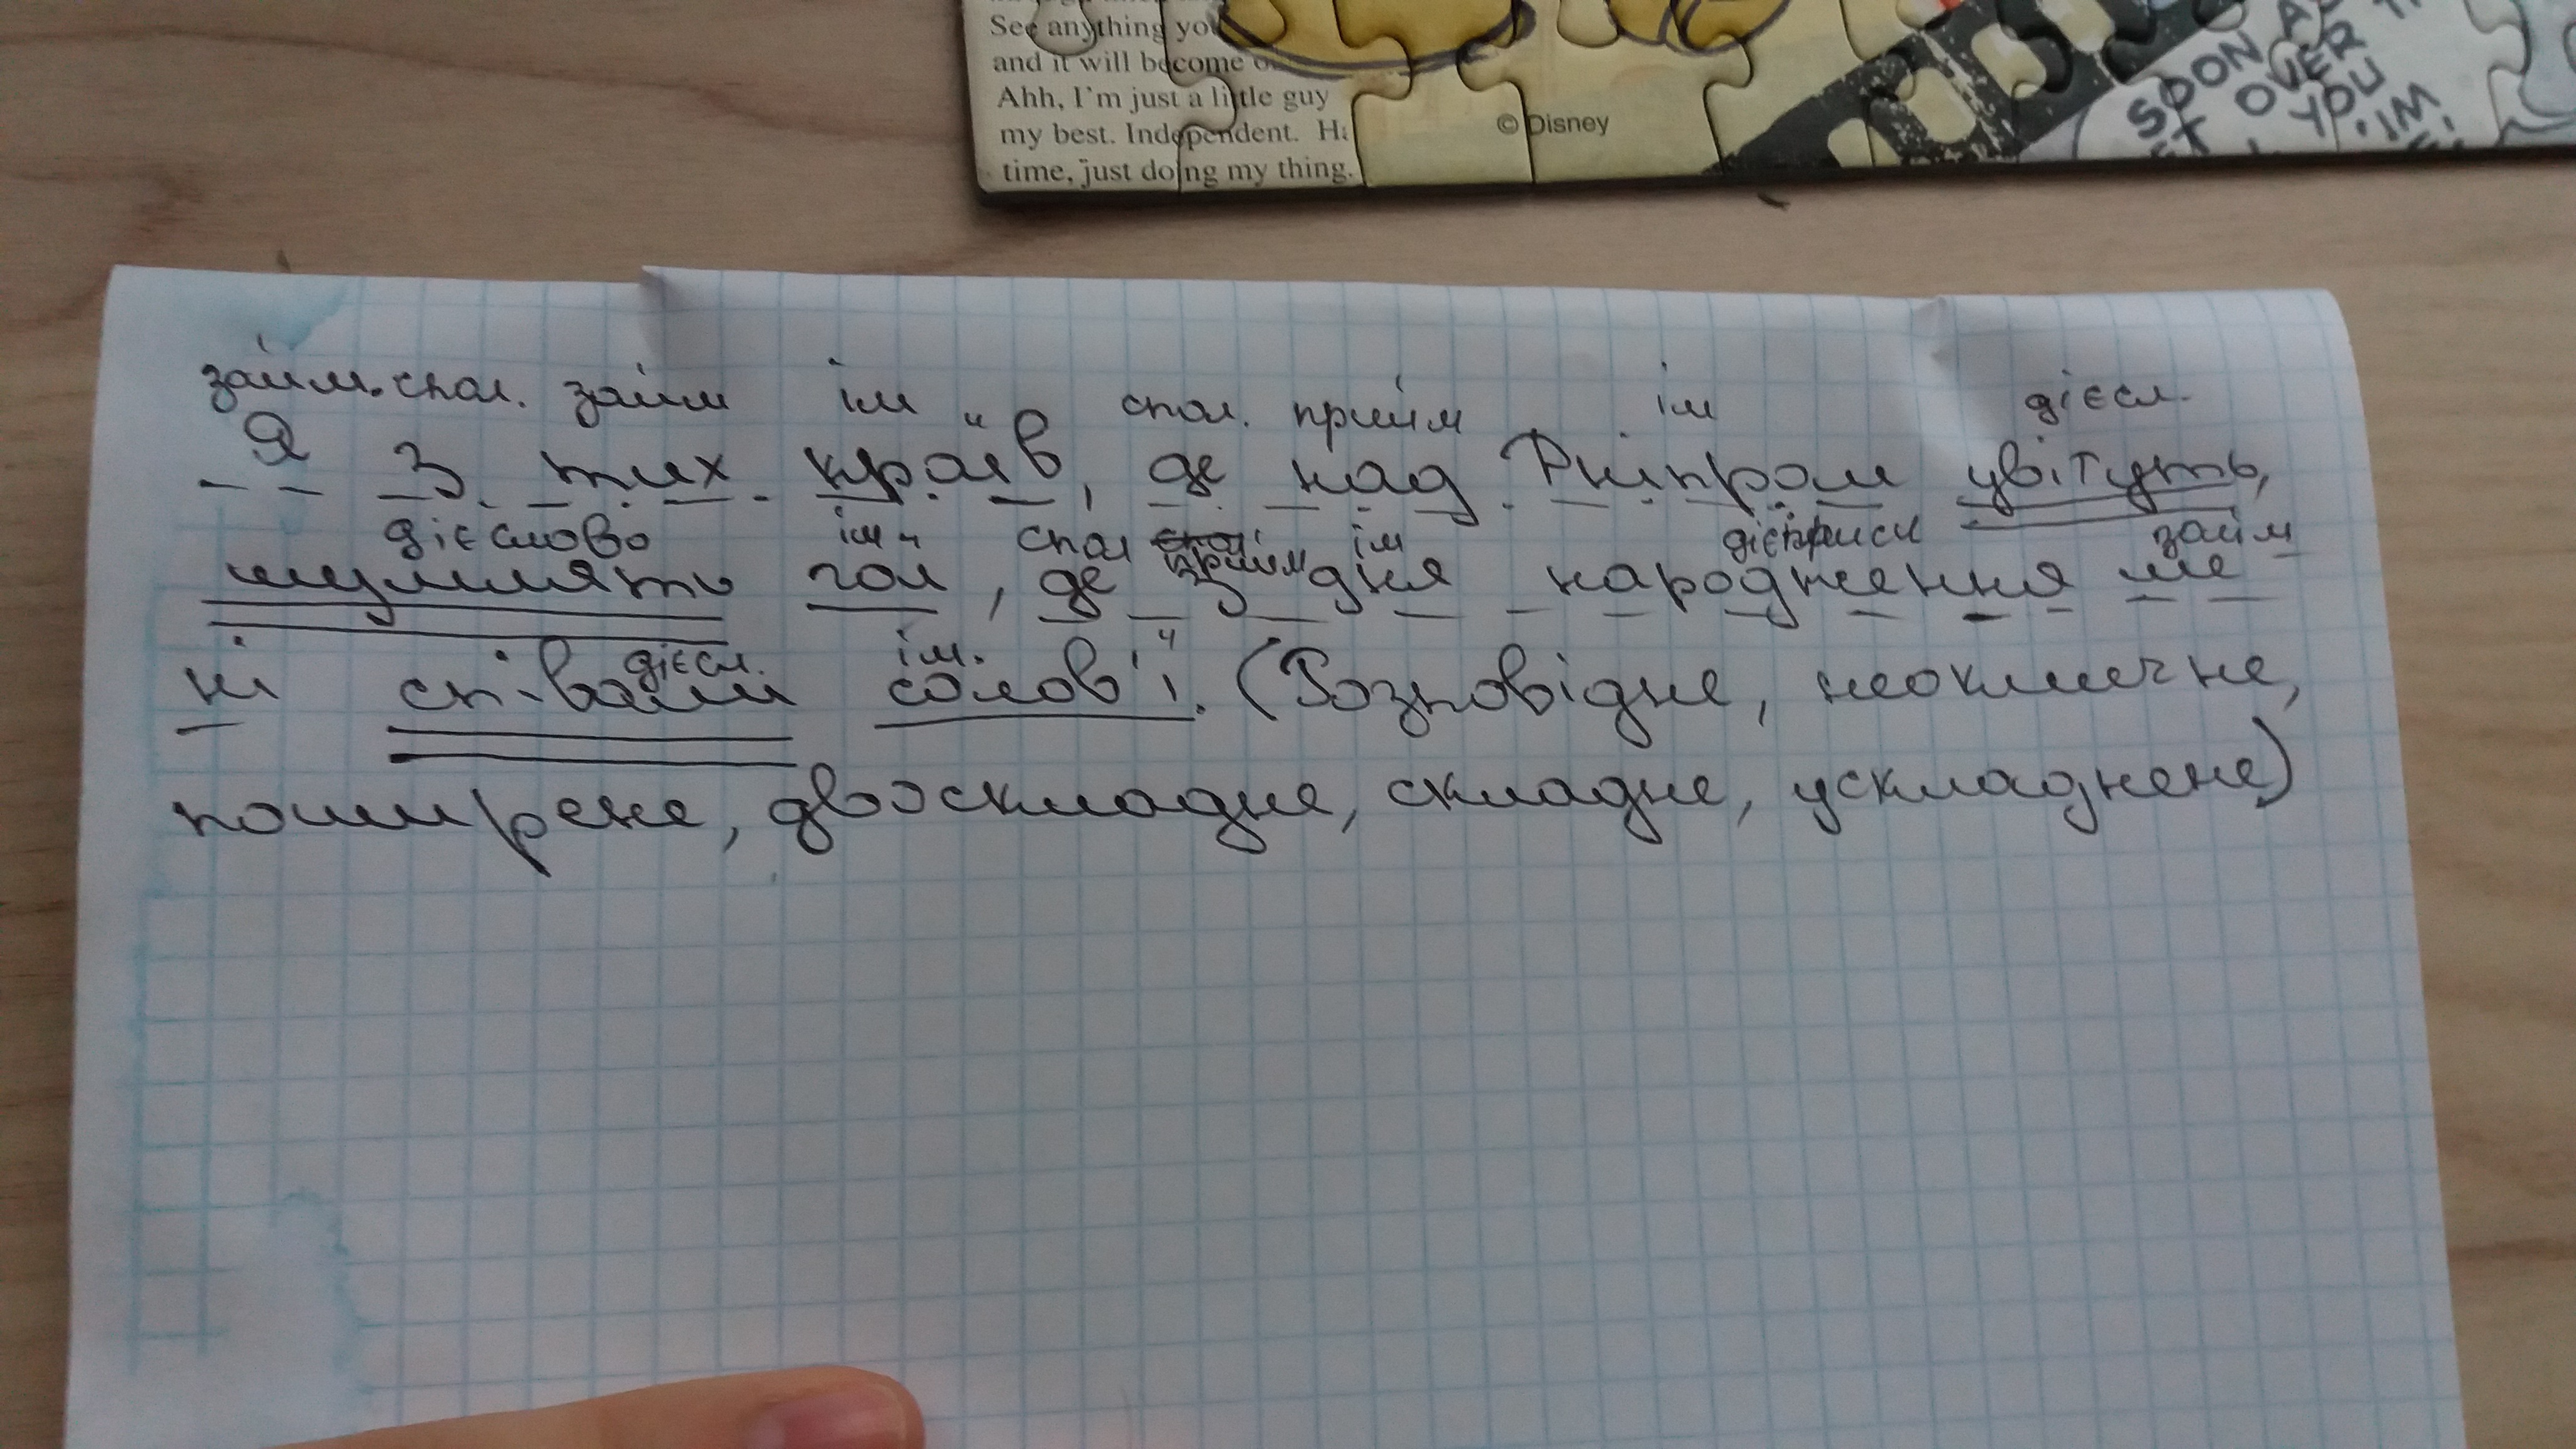 See anything you
and it will become
Ahh, I'm just a little guy
my best. Independent.
time, just doing my thing.
© Disney
SOON
OVER
YOU
займ. спол. займ ім спол. прийм ім дієсл.
Я з тих країв, де над Дніпром цвітуть,
дієслово ім. спол прийм ім дієприсл займ
шумлять гаї, де з дня народження ме-
дієсл. ім.
ні співали солов'ї. (Розповідне, неокличне,
поширене, двоскладне, складне, ускладнене)